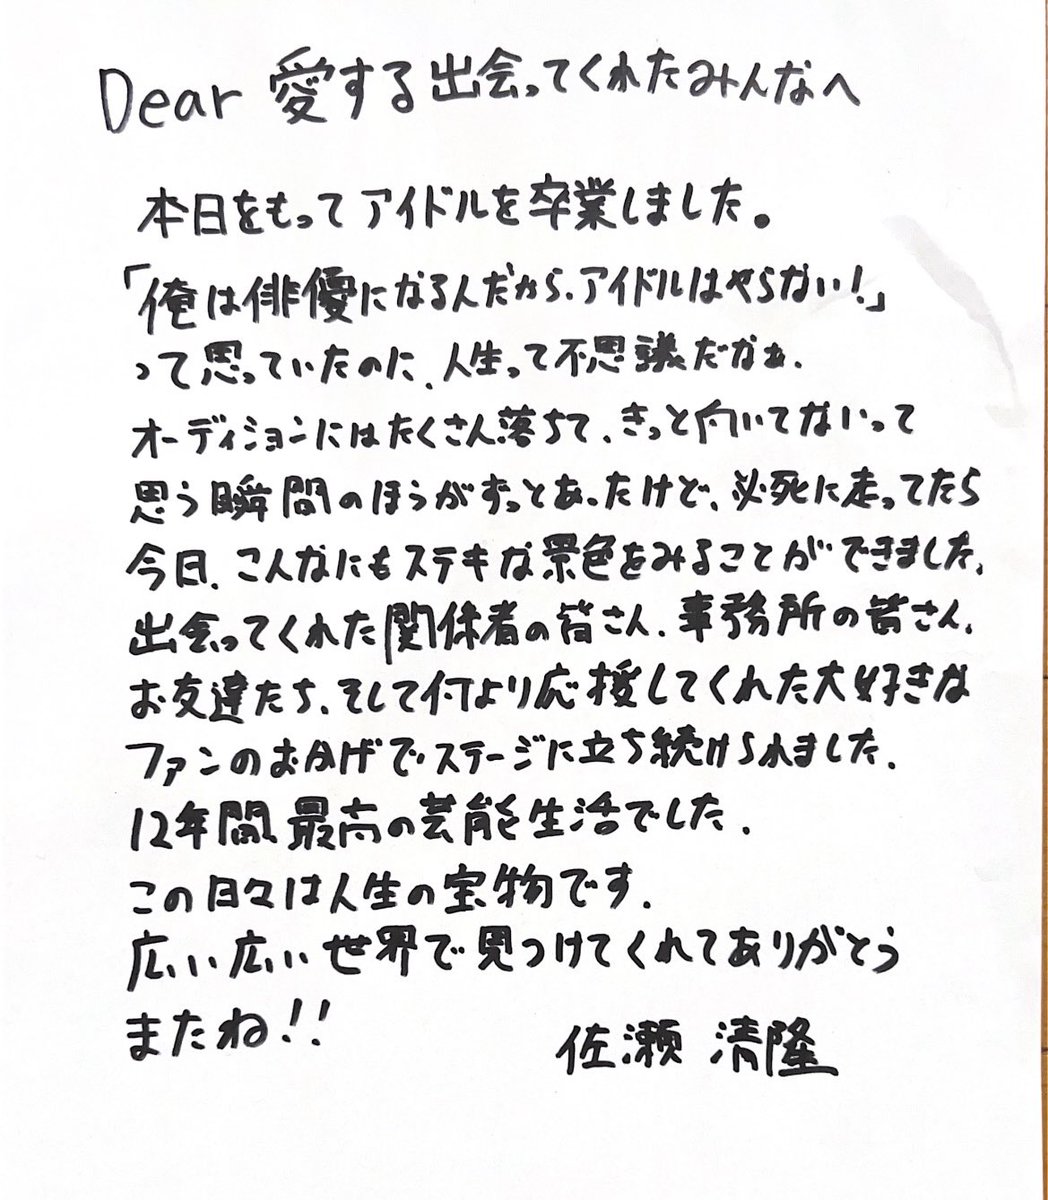 Dear 愛する出会ってくれたみんなへ
本日をもってアイドルを卒業しました。
「俺は俳優になるんだから、アイドルはやらない!」
って思っていたのに、人生って不思議だなぁ、
オーディションにはたくさん落ちて、きっと向いてないって
思う瞬間のほうがずっとあったけど、必死に走ってたら
今日、こんなにもステキな景色をみることができました、
出会ってくれた関係者の皆さん、事務所の皆さん、
お友達たち、そして何より応援してくれた大好きな
ファンのおかげでステージに立ち続けられました、
12年間、最高の芸能生活でした、
この日々は人生の宝物です、
広い広い世界で見つけてくれてありがとう
またね!!
佐瀬 清隆